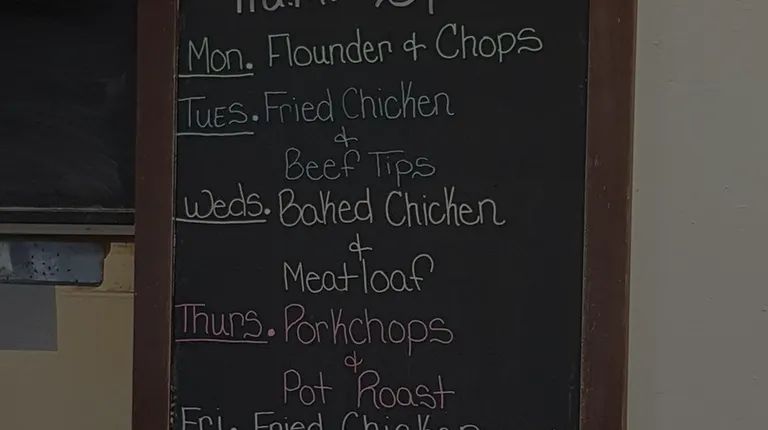 Mon. Flounder & Chops
Tues. Fried Chicken
&
Beef Tips
Weds. Baked Chicken
&
Meatloaf
Thurs. Porkchops
&
Pot Roast
Fri. Fried Chicken